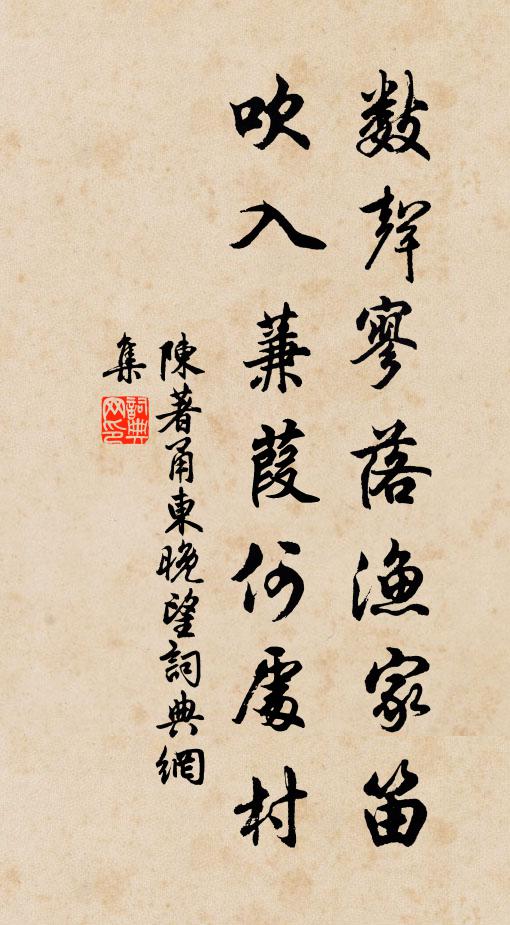 數聲寥落漁家笛
吹入蒹葭何處村
陳著甬東晚望詞典網
集
詞典
网印